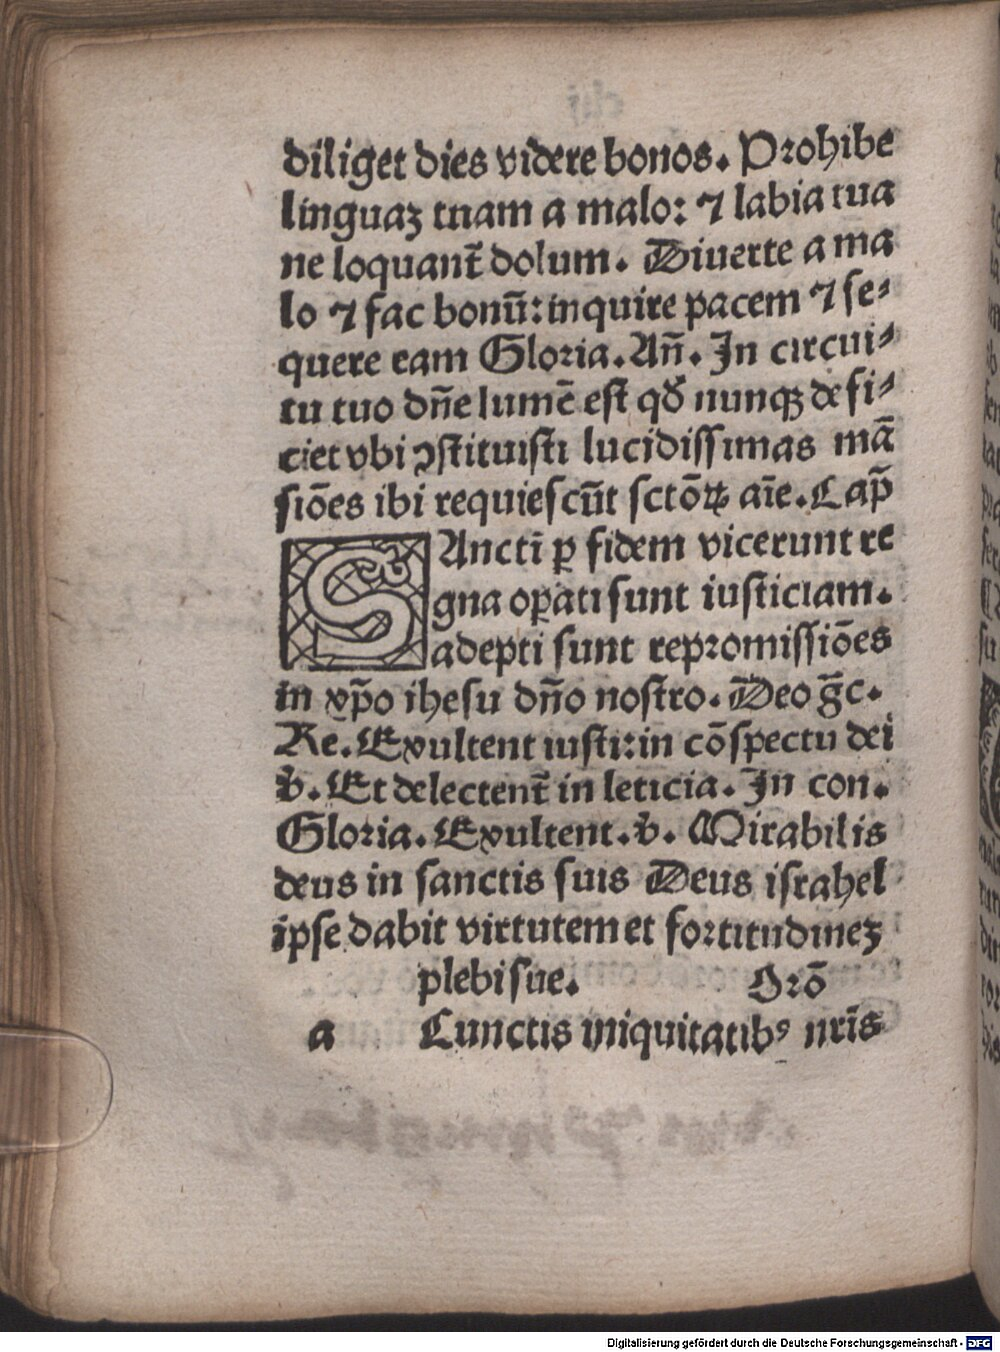 diliget dies videre bonos. Prohibe
linguaꝫ tuam a malo: ⁊ labia tua
ne loquant̄ dolum. Diuerte a ma
lo ⁊ fac bonū: inquire pacem ⁊ se⸗
quere eam Gloria. Añ. In circui⸗
tu tuo dñe lumē est qđ nunqꝫ defi⸗
ciet vbi ꝯstituisti lucidissimas mā
siões ibi requiescūt sctōꝝ aīe. Cap̄
SAncti ꝑ fidem vicerunt re
gna oꝑati sunt iusticiam.
adepti sunt repromissiões
in xp̄o ihesu dño nostro. Deo gr̄c.
Re. Exultent iusti: in cōspectu dei
v̄. Et delectent̄ in leticia. In con.
Gloria. Exultent. v̄. Mirabilis
deus in sanctis suis Deus israhel
ipse dabit virtutem et fortitudineꝫ
plebi sue. Orō
a Cunctis iniquitatibꝰ nr̄is
Digitalisierung gefördert durch die Deutsche Forschungsgemeinschaft - DFG